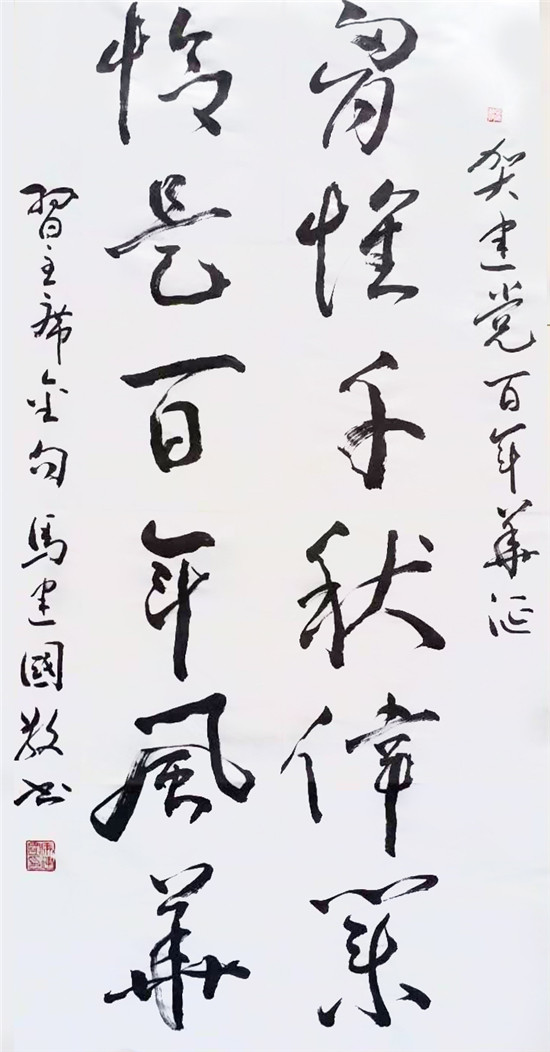 贺建党百年華诞
胸懷千秋偉業
恰是百年風華
習主席金句 馬建國敬书